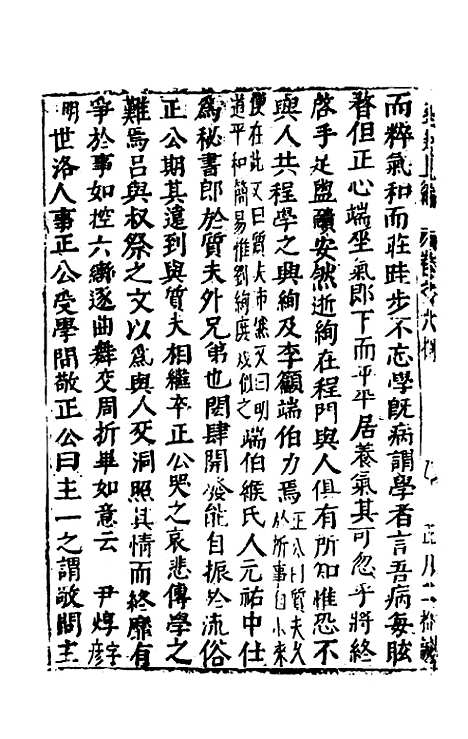 而粹氣和而莊跬步不忘學旣病謂學者言吾病每眩
瞀但正心端坐氣即下而平平居養氣其可忽乎將終
啓手足盥頮安然逝絢在程門與人俱有所知惟恐不
與人共程學之興絢及李籲端伯力焉正公曰質夫久於所事自小來
便在此又曰質夫沛然又曰明道平和簡易惟劉絢庶幾似之端伯緱氏人元祐中仕
爲秘書郎於質夫外兄弟也閎肆開發能自振於流俗
正公期其遠到與質夫相繼卒正公哭之哀悲傳學之
難焉呂與叔祭之文以爲與人交洞照其情而終靡有
爭於事如控六轡逐曲舞交周折畢如意云　尹焞字彥
明世洛人事正公受學問敬正公曰主一之謂敬問主